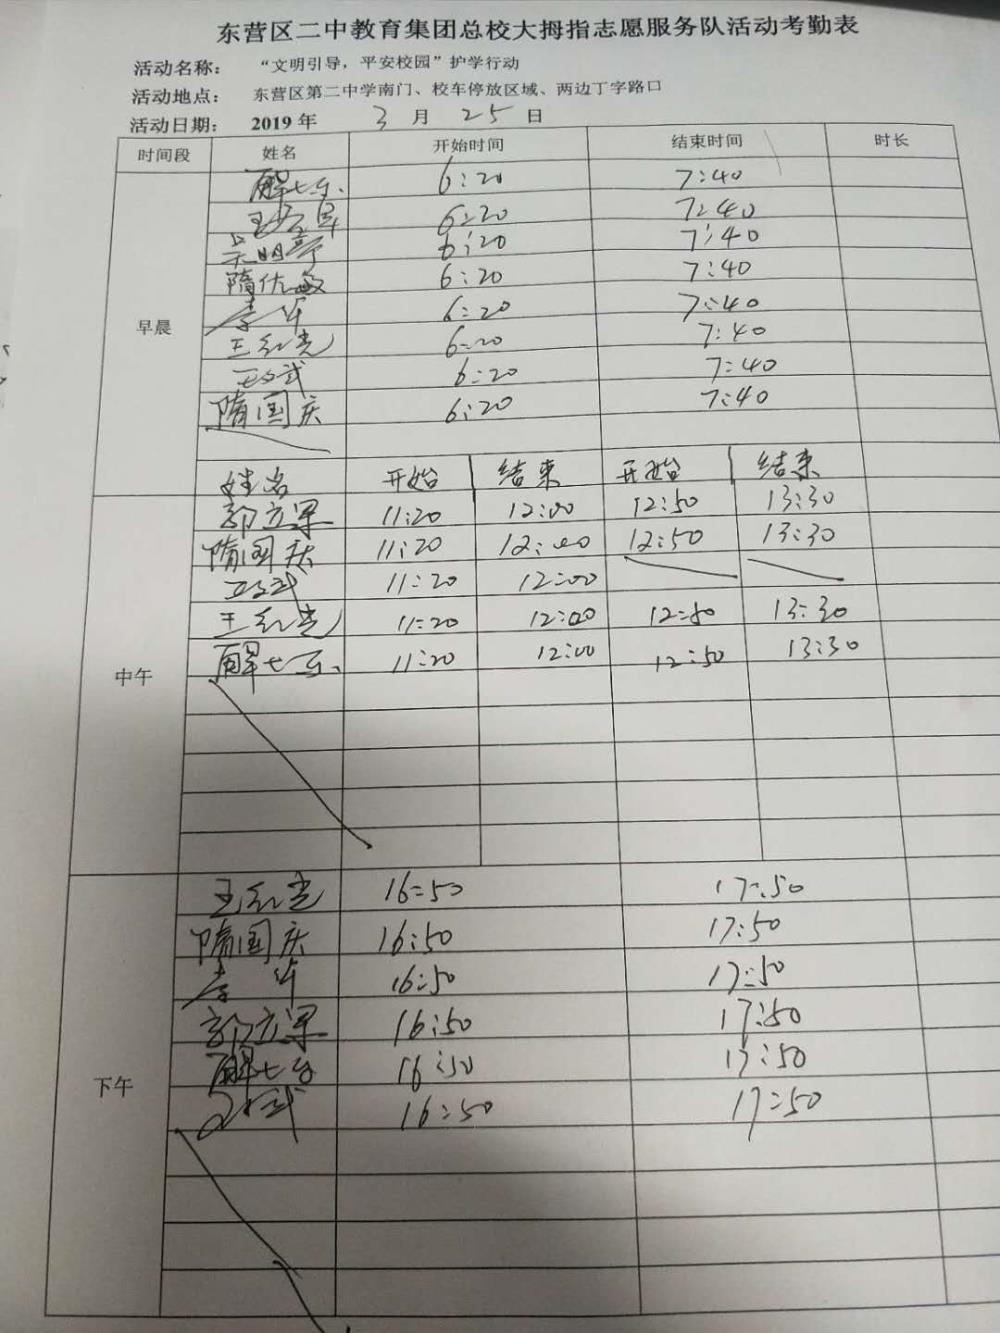 东营区二中教育集团总校大拇指志愿服务队活动考勤表
活动名称： “文明引导，平安校园”护学行动
活动地点： 东营区第二中学南门、校车停放区域、两边丁字路口
活动日期： 2019年 3 月 25 日
时间段 姓名 开始时间 结束时间 时长
早晨
解七东 6:20 7:40
6:20 7:40
吴明亮 6:20 7:40
隋优敏 6:20 7:40
李华 6:20 7:40
王红光 6:20 7:40
王武 6:20 7:40
隋国庆 6:20 7:40
姓名 开始 结束 开始 结束
中午
郭立军 11:20 12:00 12:50 13:30
隋国庆 11:20 12:00 12:50 13:30
11:20 12:00
王红光 11:20 12:00 12:50 13:30
解七东 11:20 12:00 12:50 13:30
下午
王红光 16:50 17:50
隋国庆 16:50 17:50
李华 16:50 17:50
郭立军 16:50 17:50
解七东 16:50 17:50
16:50 17:50